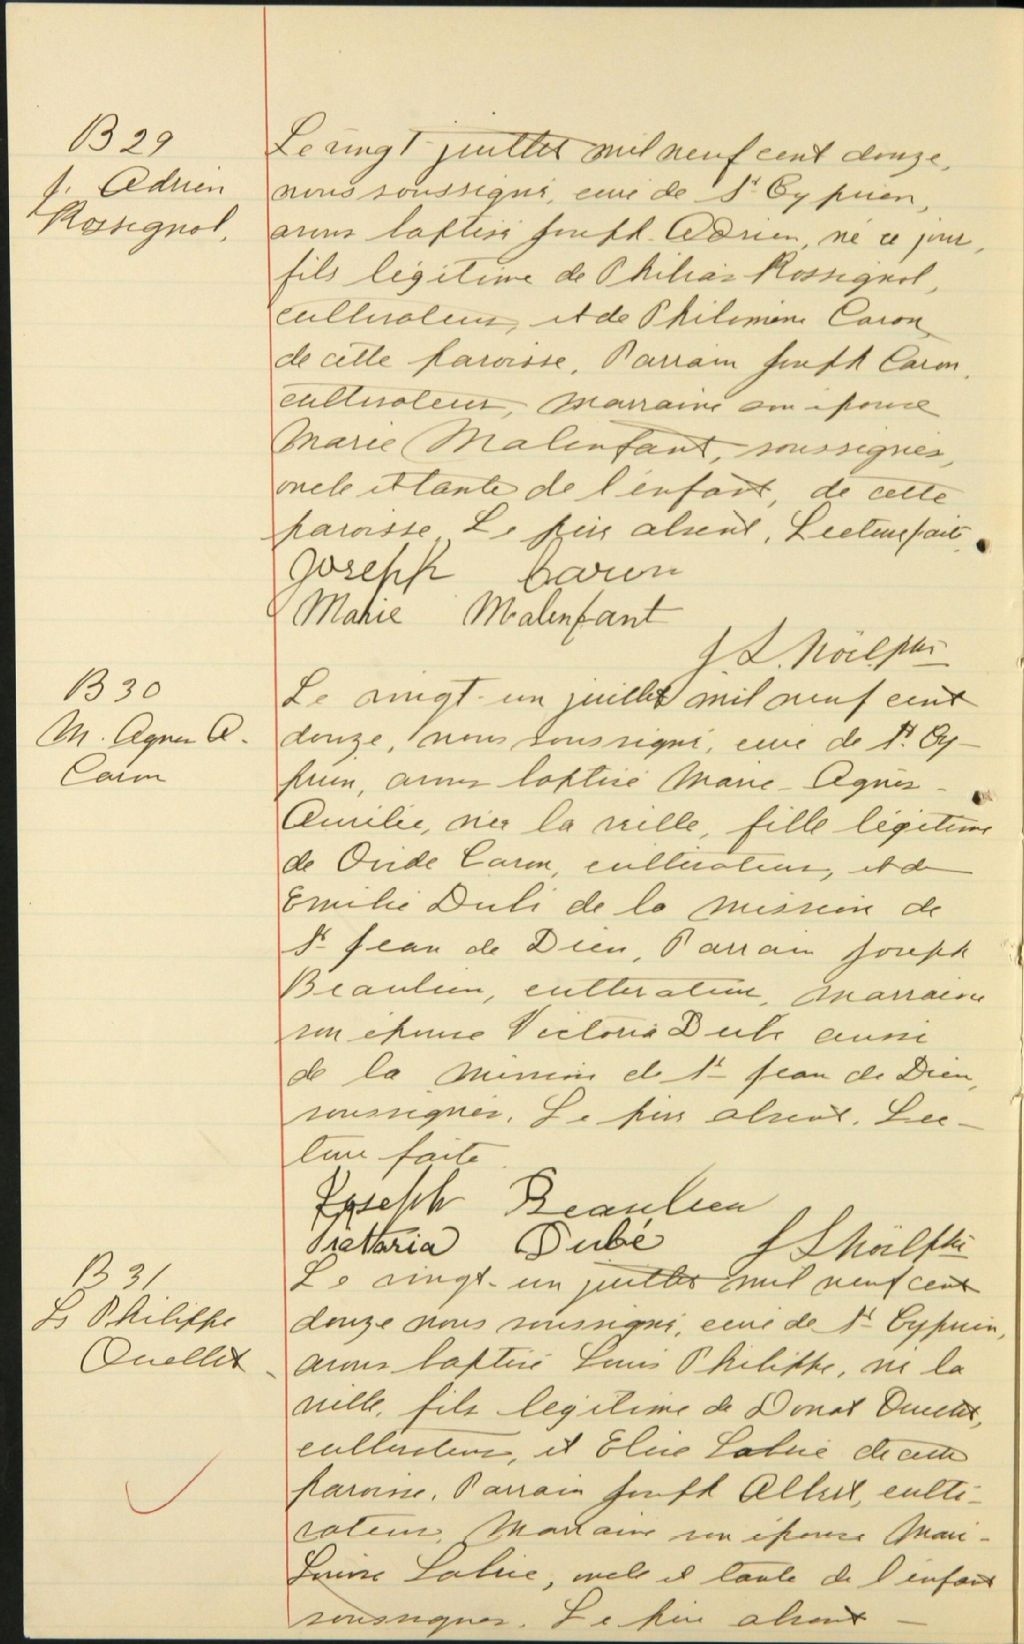 B 29
J. Adrien
Rossignol.
Le vingt juillet mil neuf cent douze,
nous soussigné, curé de St Cyprien,
avons baptisé Joseph-Adrien, né ce jour,
fils légitime de Philias Rossignol,
cultivateur, et de Philomène Caron
de cette paroisse. Parrain Joseph Caron,
cultivateur, marraine son épouse
Marie Malenfant, soussignés,
oncle et tante de l'enfant, de cette
paroisse. Le père absent. Lecture faite.
Joseph Caron
Marie Malenfant
J L. Noël ptre
B 30
M. Agnes A.
Caron
Le vingt-un juillet mil neuf cent
douze, nous soussigné, curé de St. Cy-
prien, avons baptisé Marie-Agnès-
Aurélie, née la veille, fille légitime
de Ovide Caron, cultivateur, et de
Emilie Dubé de la mission de
St Jean de Dieu, Parrain Joseph
Beaulieu, cultivateur, marraine
son épouse Victoria Dubé aussi
de la mission de St Jean de Dieu,
soussignés. Le père absent. Lec-
ture faite
Joseph Beaulieu
Dubé J L Noël ptre
B 31
Ls Philippe
Ouellet
Le vingt-un juillet mil neuf cent
douze nous soussigné, curé de St Cyprien,
avons baptisé Louis Philippe, né la
veille, fils légitime de Donat Ouellet,
cultivateur, et Elise Labrie de cette
paroisse. Parrain Joseph Albert, culti-
vateur, Marraine son épouse Marie-
Louise Labrie, oncle et tante de l'enfant
soussignés. Le père absent —